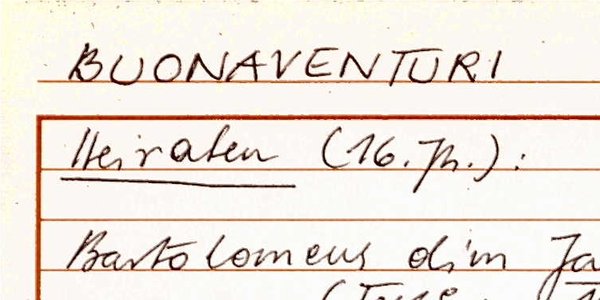 BUONAVENTURI
Heiraten (16. Jh.):
Bartolomeus dim Ja